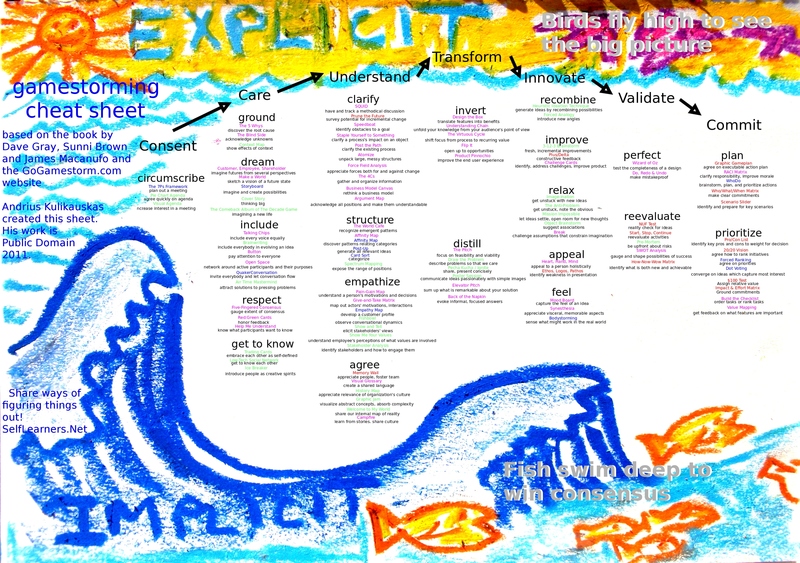 EXPLICIT
Birds fly high to see
the big picture
gamestorming
cheat sheet
based on the book by
Dave Gray, Sunni Brown
and James Macanufo and
the GoGamestorm.com
website.
Andrius Kulikauskas
created this sheet.
His work is
Public Domain
2011
Consent
Care
Understand
Transform
Innovate
Validate
Commit
circumscribe
The 7Ps Framework
plan out a meeting
agree quickly on agenda
increase interest in a meeting
ground
The 5 Whys
discover the root cause
The Blind Side
acknowledge unknowns
show effects of context
dream
Customer, Employee, Shareholder
imagine futures from several perspectives
Make a World
sketch a vision of a future state
Storyboard
imagine and create possibilities
thinking big
imagining a new life
include
Talking Chips
include every voice equally
include everybody in evolving an idea
Button
pay attention to everyone
Open Space
network around active participants and their purposes
invite everybody to aid conversation flow
attract solutions to pressing problems
respect
gauge extent of consensus
Red:Green Cards
honor feedback
Help Me Understand
know what participants want to know
get to know
embrace each other as self-defined
get to know each other
introduce people as creative spirits
clarify
SQUID
have and track a methodical discussion
Prune the Future
survey potential for incremental change
Speedboat
identify obstacles to a goal
Staple Yourself to Something
clarify a process's impact on an object
Post the Path
clarify the existing process
Atomize
unpack large, messy structures
Force Field Analysis
appreciate forces both for and against change
The 4Cs
gather and organize information
Business Model Canvas
rethink a business model
Argument Map
acknowledge all positions and make them understandable
structure
The World Cafe
recognize emergent patterns
Affinity Map
discover patterns needing categories
Post-Up
generate all relevant ideas
Card Sort
categorize
expose the range of positions
empathize
Pain-Gain Map
understand a person's motivations and decisions
Give and Take Matrix
map out actors' motivations, interactions
Empathy Map
develop a customer profile
observe conversational dynamics
elicit stakeholders' views
understand employee's perceptions of what values are involved
identify stakeholders and how to engage them
agree
Memory Wall
appreciate people, foster team
Visual Glossary
create a shared language
appreciate relevance of organization's culture
visualize abstract concepts, absorb complexity
share our internal map of reality
Campfire
learn from stories, share culture
invert
Design the Box
translate features into benefits
Understanding Chain
unfold your knowledge from your audience's point of view
The Virtuous Cycle
shift focus from process to recurring value
Flip It
open up to opportunities
Product Pinocchio
improve the end user experience
distill
The Pitch
focus on feasibility and viability
describe problems so that all care
share, present concisely
communicate ideas passionately with simple images
Elevator Pitch
sum up what is remarkable about your solution
Back of the Napkin
evoke informal, focused answers
recombine
generate ideas by recombining possibilities
introduce new angles
improve
fresh, incremental improvements
Plus/Delta
constructive feedback
Challenge Cards
identify, address challenges, improve product
relax
get unstuck with new ideas
get unstuck, note the obvious
let ideas settle, open room for new thoughts
suggest associations
Break
challenge assumptions that constrain imagination
appeal
Heart, Hand, Mind
appeal to a person holistically
Ethos, Logos, Pathos
identify weakness in presentation
feel
capture the feel of an idea
Synesthesia
appreciate visceral, memorable aspects
Bodystorming
sense what might work in the real world
perfect
Wizard of Oz
test the completeness of a design
Do, Redo & Undo
make mistakeproof
reevaluate
NUF Test
reality check for ideas
Start, Stop, Continue
reevaluate activities
be upfront about risks
SWOT Analysis
gauge and shape possibilities of success
identify what is both new and achievable
plan
Graphic Gameplan
agree on executable action plan
RACI Matrix
clarify responsibility, improve morale
WhoDo
brainstorm, plan, and prioritize actions
Who/What/When Matrix
make clear commitments
Scenario Slider
identify and prepare for key scenarios
prioritize
Pro/Con List
identify key pros and cons to weight for decision
20/20 Vision
agree how to rank initiatives
Forced Ranking
agree on priorities
Dot Voting
converge on ideas which capture most interest
$100 Test
Assign relative value
Impact & Effort Matrix
Ground commitments
Build the Checklist
order tasks or rank tasks
Value Mapping
get feedback on what features are important
Share ways of
figuring things
out!
SelfLearners.Net
Fish swim deep to
win consensus
IMPLICIT